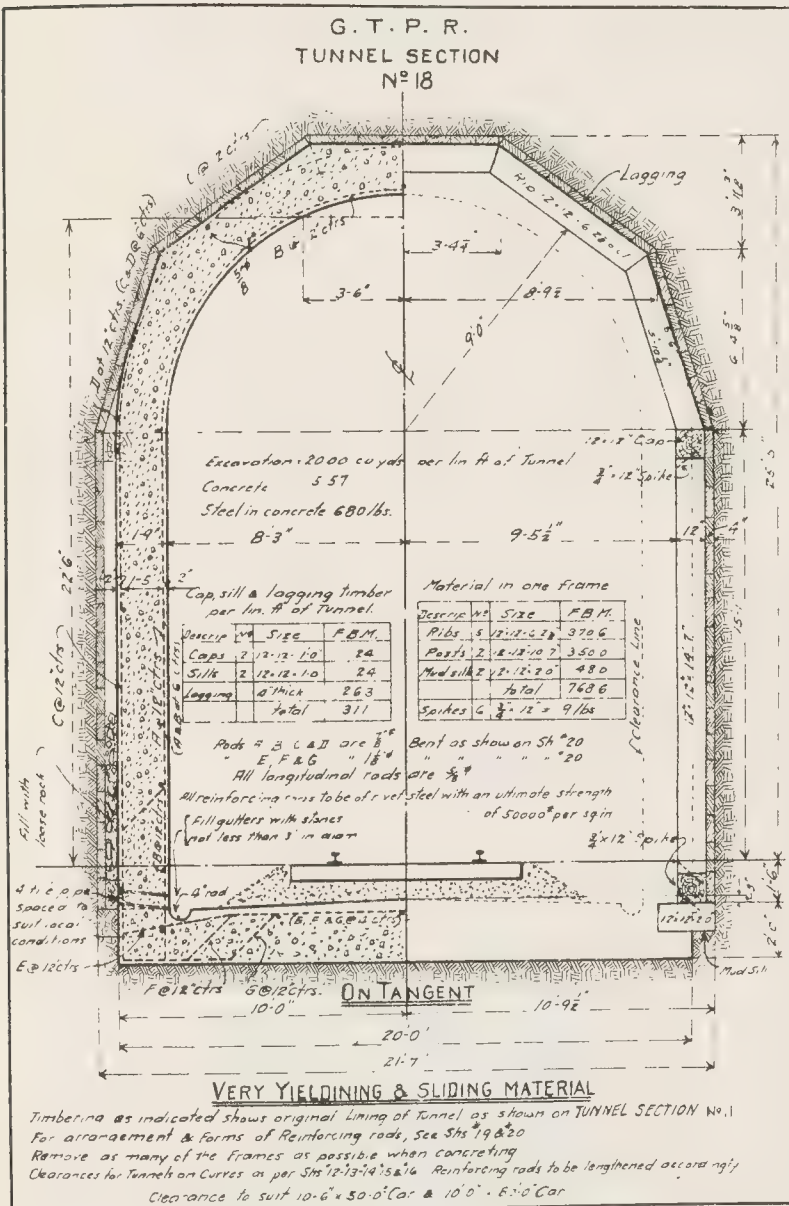 G. T. P. R.
TUNNEL SECTION
Nº 18
C @ 12"ctrs
D at 12"ctrs. (C&D@6"ctrs)
B @ 12"ctrs
Lagging
3'-4¼"
3'-6"
8'-9½"
9'-0"
12"×12" Cap
¾" × 12" Spike
Excavation = 20.00 cu yds per lin ft of Tunnel
Concrete 5.57
Steel in concrete 680 lbs.
1'-9"
8'-3"
9'-5½"
12"
4"
1'-5"
2"
22'-6"
C @ 12"ctrs
Cap, sill & lagging timber
per lin. ft of Tunnel.
Descrip Nº Size F.B.M.
Caps 2 12×12×1·0 24
Sills 2 12×12×1·0 24
Lagging 4" thick 263
total 311
Material in one frame
Descrip Nº Size F.B.M.
Ribs 5 370.6
Posts 2 350.0
Mud sills 2 48.0
total 768.6
Spikes 6 ¾" × 12" = 9 lbs
Clearance Line
12"×12"×14'-7"
Bent as show on Sh #20
" " " " " #20
E, F & G
All longitudinal rods are ⅝"
All reinforcing rods to be of rivet steel with an ultimate strength
of 50000# per sq in
Fill gutters with stones
not less than 3" in diam
¾" × 12" Spike
Fill with
loose rock
4" rad
4" tile pipe
spaced to
suit local
conditions
(E, F & G @ 12 ctrs)
1'-6"
2'-0"
12·12·20
E @ 12"ctrs
Mud Sill
F @ 12"ctrs G @ 12"ctrs.
ON TANGENT
10'-0"
10'-9½"
20'-0"
21'-7"
VERY YIELDINING & SLIDING MATERIAL
Timbering as indicated shows original Lining of Tunnel as shown on TUNNEL SECTION No. 1
For arrangement & Forms of Reinforcing rods, See Shs #19 & #20
Remove as many of the Frames as possible when concreting
Clearances for Tunnels on Curves as per Shs #12-13-14-15 & 16 Reinforcing rods to be lengthened accordingly
Clearance to suit 10'-6" × 50'-0" Car & 10'-0" × Car